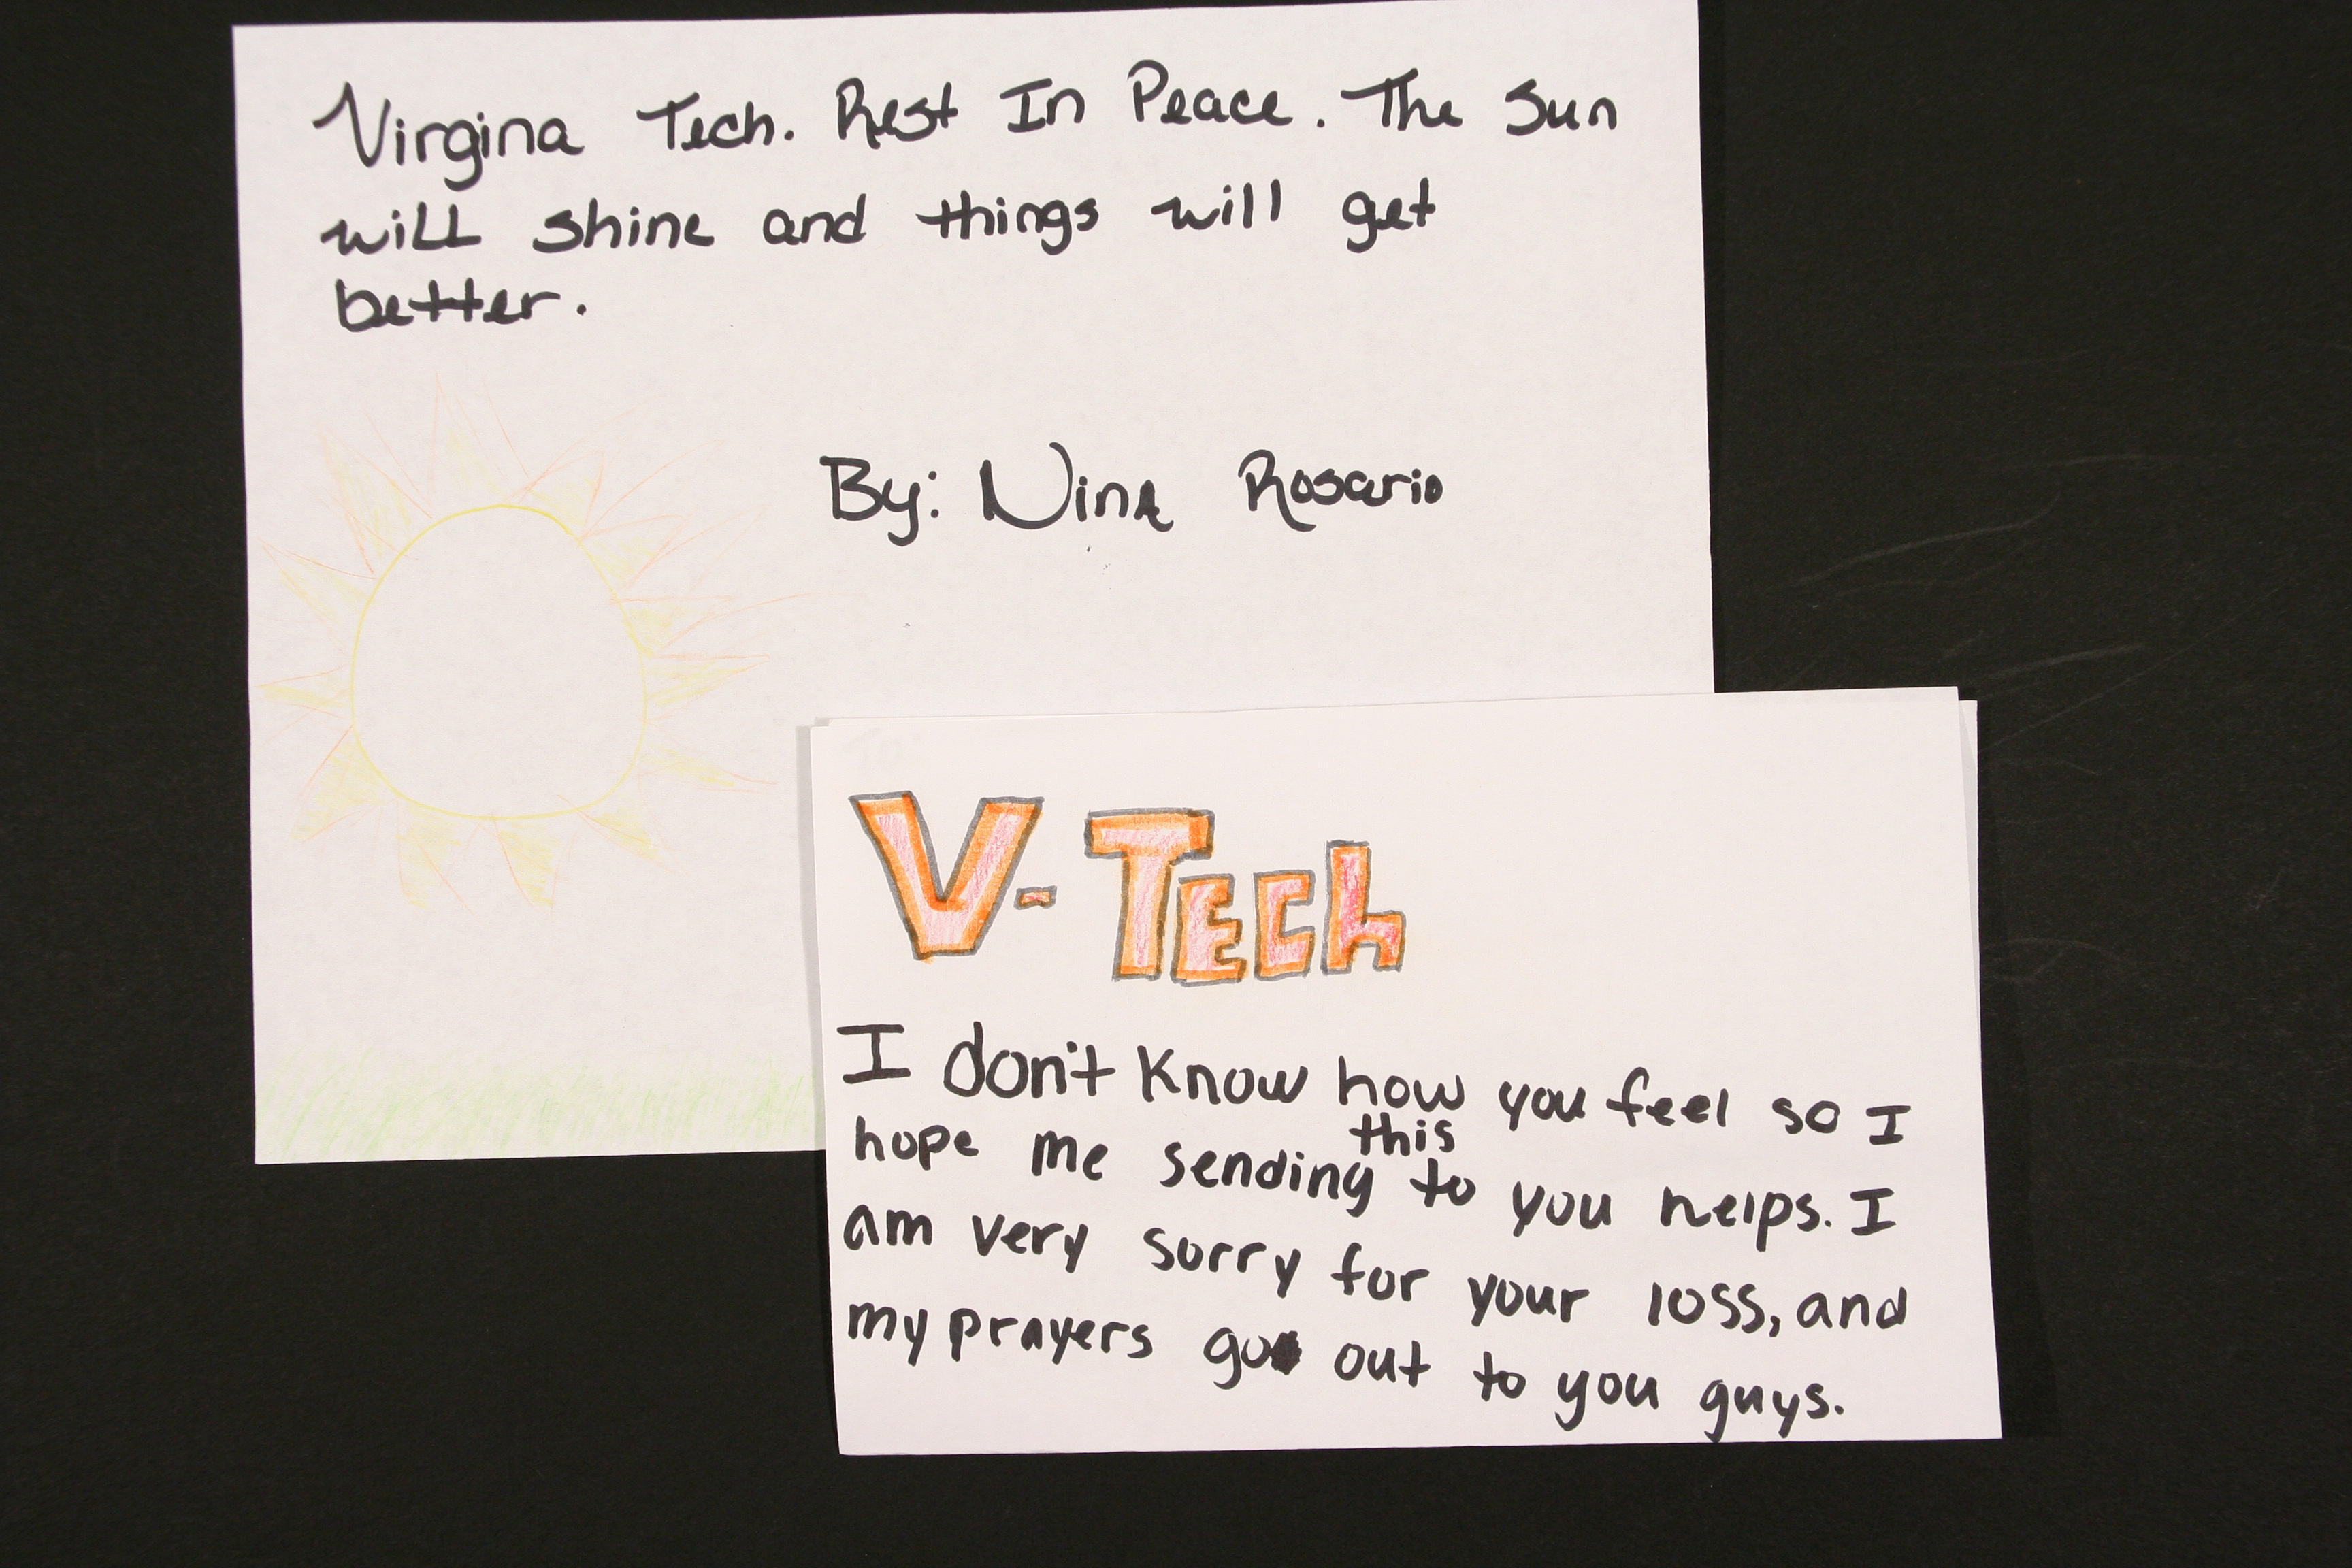 Virgina Tech. Rest In Peace. The Sun
will shine and things will get
better.
By: Nina Rosario
To:
V-Tech
I don't know how you feel so I
hope me sending this to you helps. I
am very sorry for your loss, and
my prayers go out to you guys.